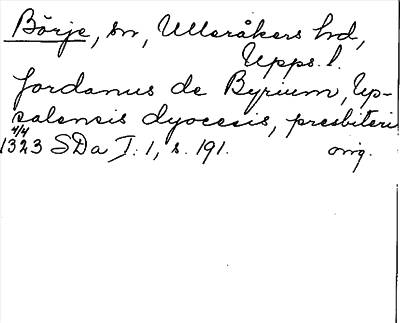 Börje, sn, Ulleråkers hd,
Upps. l.
Jordanus de Byrium, Up-
salensis dyocesis, presbiteri
4/4
1323 SDa I: 1, s. 191. orig.